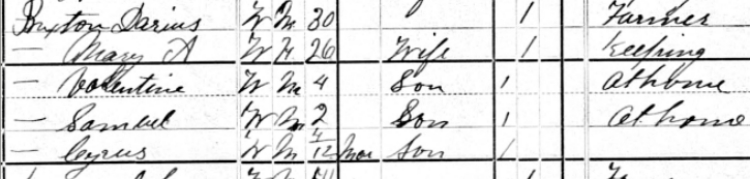 Buxton Darius W M 30 1 Farmer
— Mary A W F 26 Wife 1 Keeping
— Valentine W M 4 Son 1 At home
— Samuel W M 2 Son 1 At home
— Cyrus W M 4/12 Mar Son 1